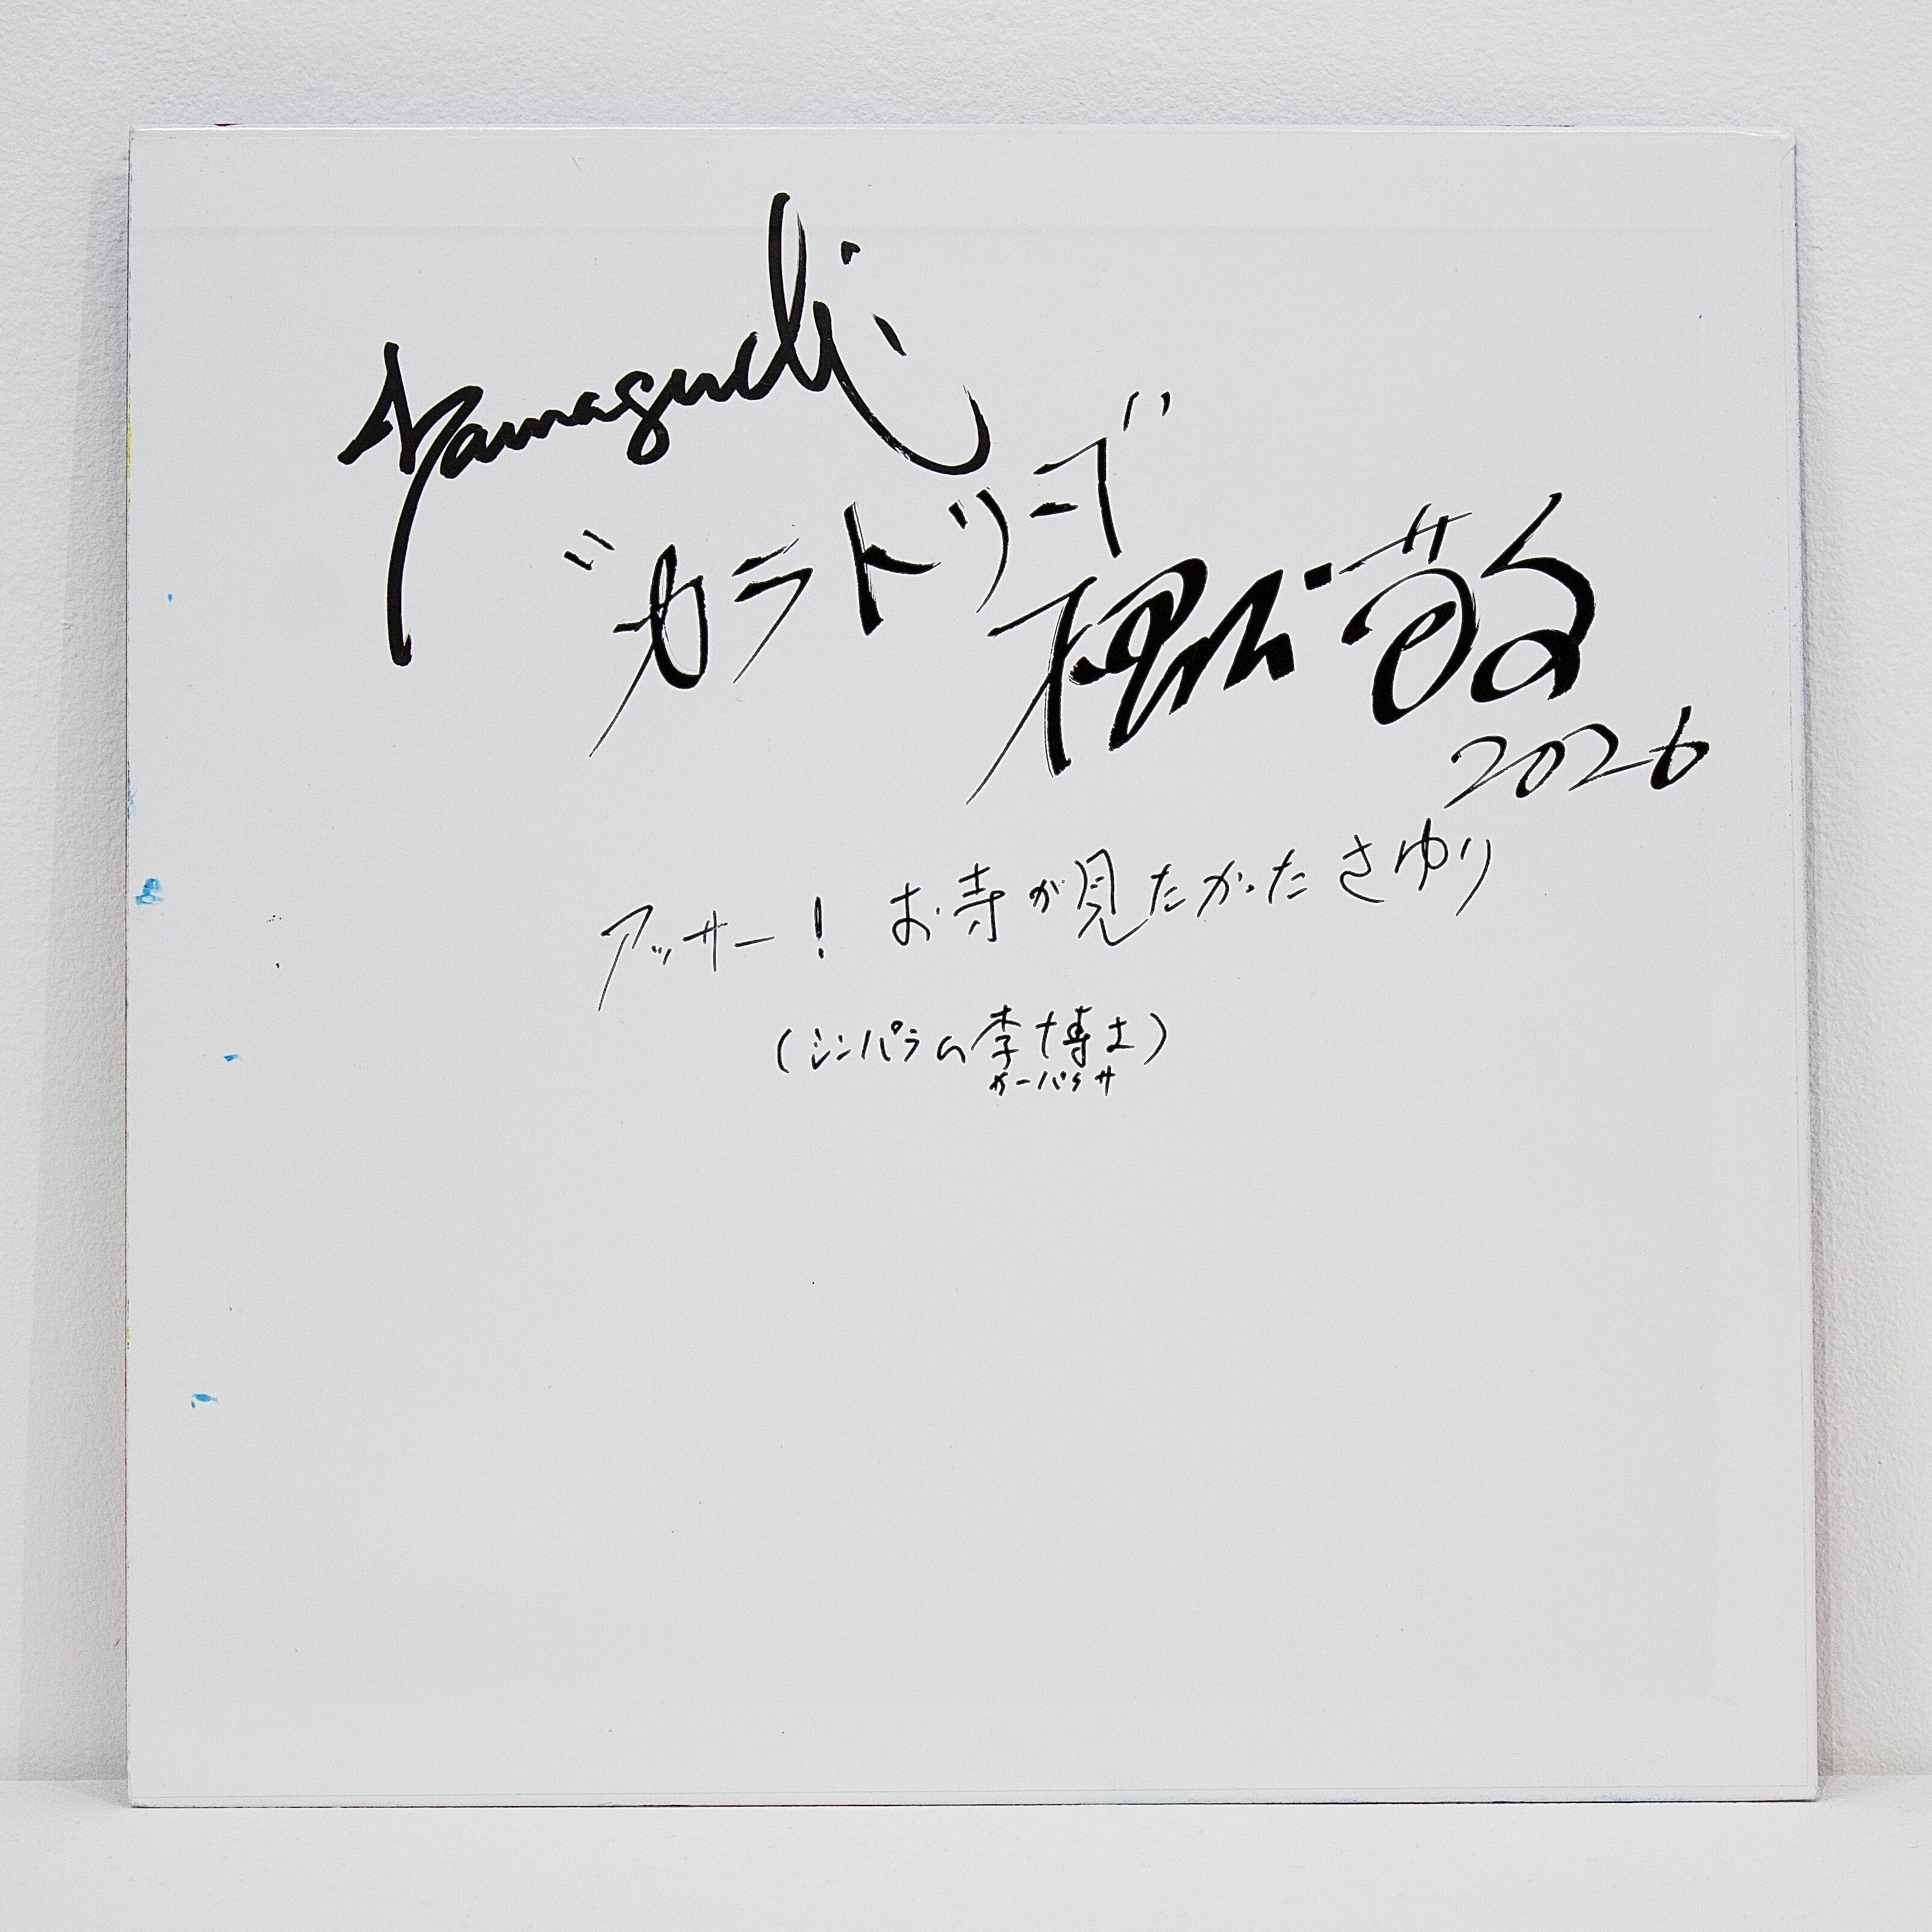 Yamaguchi
"カラトリーズ"
2026
アッサー! お寺が見たかったさゆり
(シンパラム李博士)